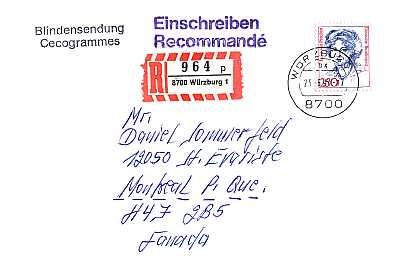 Blindensendung
Cecogrammes
Einschreiben
Recommandé
R
964 p
8700 Würzburg 1
WÜRZBURG
8700
250
Mr.
Daniel Sommerfeld
12050 St. Evariste
Montreal P. Que.
H4J 2B5
Canada